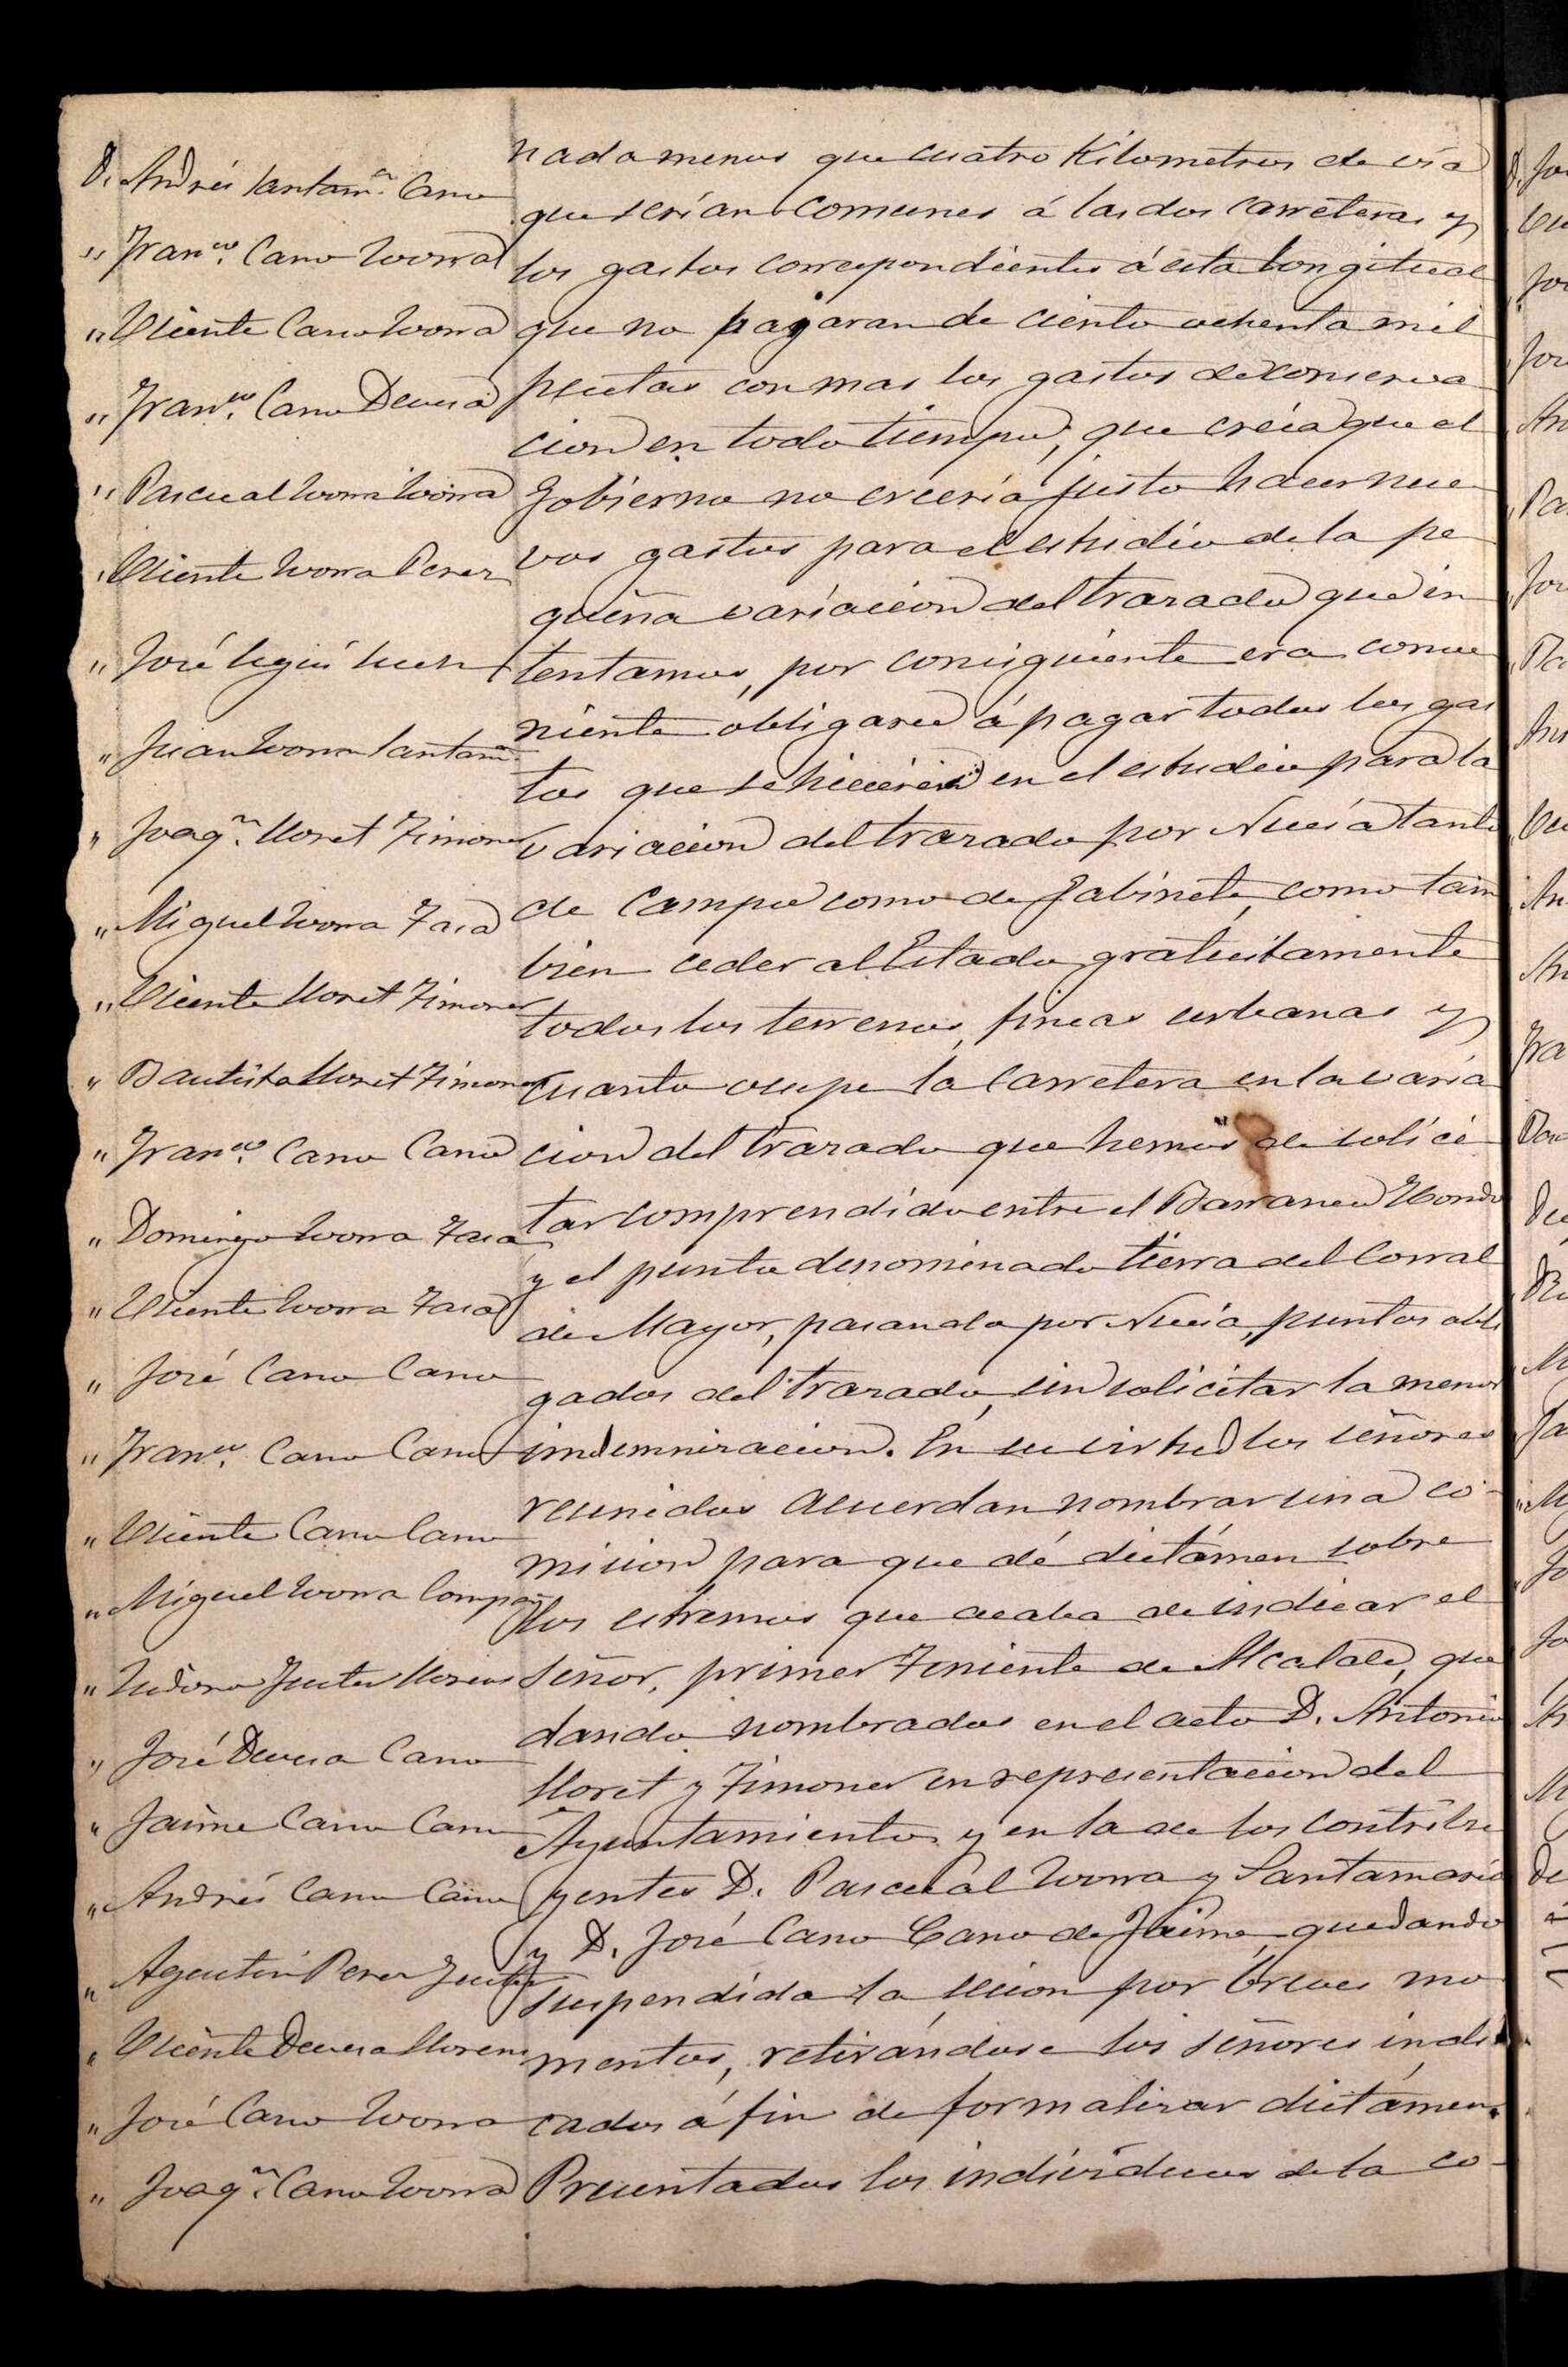 D. Andrés Santamª. Cano
" Franco. Cano Llorca
" Vicente Cano Llorca
" Franco. Cano Devesa
" Pascual Llorca Llorca
" Vicente Llorca Perez
" José Seguí
" Juan Llorca Santamª.
" Joaqn. Lloret Timoner
" Miguel Llorca Fasa
" Vicente Lloret Timoner
" Bautista Lloret Timoner
" Franco. Cano Cano
" Domingo Llorca Fasa
" Vicente Llorca Fasa
" José Cano Cano
" Franco. Cano Cano
" Vicente Cano Cano
" Miguel Llorca Compañ
" Isidoro Fuster Llorens
" José Devesa Cano
" Jaime Cano Cano
" Andrés Cano Cano
" Agustin Perez Fuster
" Vicente Devesa Llorens
" José Cano Llorca
" Joaqn. Cano Llorca
nada menos que cuatro Kilometros de via
que serían comunes á las dos carreteras y
los gastos correspondientes á esta longitud
que no pagaran de ciento ochenta mil
pesetas con mas los gastos de conserva
cion en todo tiempo, que creía que el
Gobierno no creería justo hacer nue
vos gastos para el estudio de la pe
queña variacion del trazado que in
tentamos, por consiguiente era conve
niente obligarse á pagar todos los gas
tos que se hicieren en el estudio para la
variacion del trazado por Nucía tanto
de Campo como de Gabinete, como tam
bien ceder al Estado gratuitamente
todos los terrenos, fincas urbanas y
cuanto ocupe la Carretera en la varia
cion del trazado que hemos de solici
tar comprendido entre el Barranco Hondo
y el punto denominado tierra del Corral
de Mayor, pasando por Nucía, puntos obli
gados del trazado, sin solicitar la menor
indemnizacion. En su virtud los señores
reunidos acuerdan nombrar una co-
mision para que dé dictámen sobre
los estremos que acaba de indicar el
Señor, primer Teniente de Alcalde, que
dando nombrados en el acto D. Antonio
Lloret y Timoner en representacion del
Ayuntamiento y en la de los contribu
yentes D. Pascual Llorca y Santamaría
y D. José Cano Cano de Jaime, quedando
suspendida la sesion por breves mo
mentos, retirándose los señores indi
cados á fin de formalizar dictámen.
Presentados los individuos de la co-